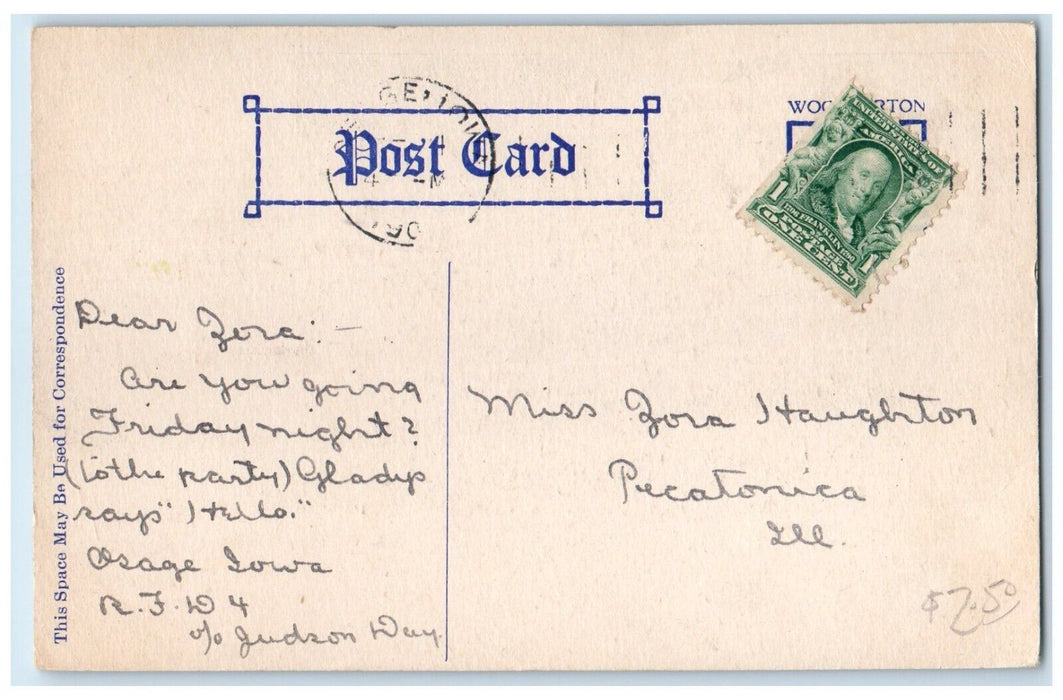 Post Card
UNITED STATES OF
AMERICA
1
1
FRANKLIN
ONE CENT
This Space May Be Used for Correspondence
Dear Zora: —
Are you going
Friday night?
(to the party) Gladys
says "Hello."
Osage Iowa
R.F.D 4
c/o Judson Day
Miss Zora Haughton
Pecatonica
Ill.
$7.50